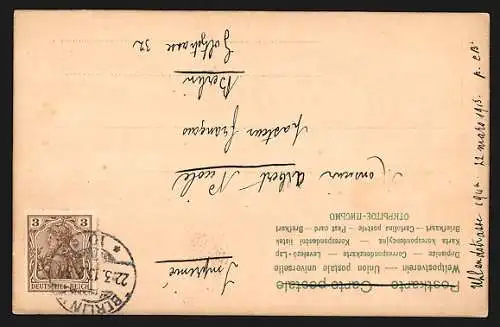 Postkarte — Carte postale
Weltpostverein — Union postale universelle
Dopisnice — Correspondenzkarte — Levelező-Lap
Karta korespondencyjna — Korespondenční lístek
Briefkaart — Cartolina postale — Post card — Brefkort
ОТКРЫТОЕ-ПИСЬМО
Imprimé
Monsieur Albert Nicole
pasteur français
Berlin
Goltzstrasse 32
3
DEUTSCHES REICH
BERLIN
22.3.13
Uhlandstrasse 194a 22 mars 1913.